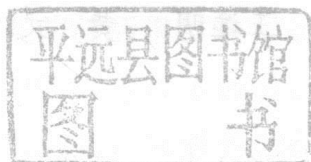 平远县图书馆
图 书